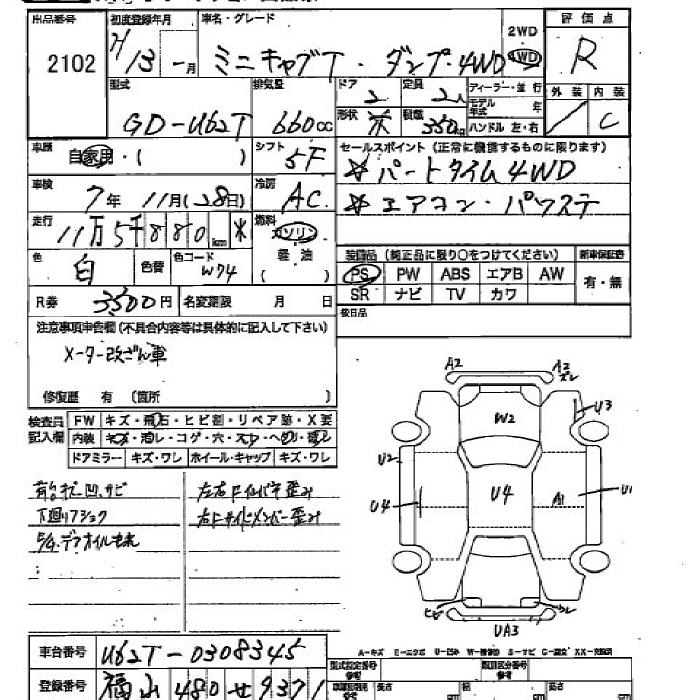 出品番号 初度登録年月 車名・グレード 2WD 評価点
2102 H13 一月 ミニキャブT・ダンプ4WD 4WD R
型式 排気量 ドア 定員 ディーラー・並行 外装 内装
GD-U62T 660cc 2 2人 モデル年式 年 C
形状 積載 350kg ハンドル 左・右
車歴 自家用・( ) シフト 5F セールスポイント (正常に機能するものに限ります)
☆パートタイム4WD
車検 7年 11月(28日) 冷房 AC ☆エアコン・パワステ
走行 11万5千880km 燃料 ガソリン 軽油 ( )
装備品 (純正品に限り○をつけてください) 新車保証書
色 白 色替 色コード W74 PS PW ABS エアB AW 有・無
SR ナビ TV カワ
R券 3500円 名変期限 月 日
後日品
注意事項申告欄 (不具合内容等は具体的に記入して下さい)
メーター改ざん車
修復歴 有 (箇所 )
検査員記入欄 FW キズ・飛石・ヒビ割・リペア跡・X要
内装 キズ・汚レ・コゲ・穴・スレ・ヘタリ・
ドアミラー キズ・ワレ ホイール・キャップ キズ・ワレ
凹、サビ 左右Fインパネ歪み
下廻りフショク 右Fサイドメンバー歪み
デフオイル
A2 A2 ズレ
W2 U3
U2 U4 U4 A1 U1
ヒビ ワレ
UA3
A-キズ E-エクボ U-凹み W-補修跡 S-サビ C-腐食 XX-交換済
車台番号 U62T-0308345
型式指定番号 参考 類別区分番号 参考
登録番号 福山 480 せ 9371
長さ cm 幅 cm 高さ cm